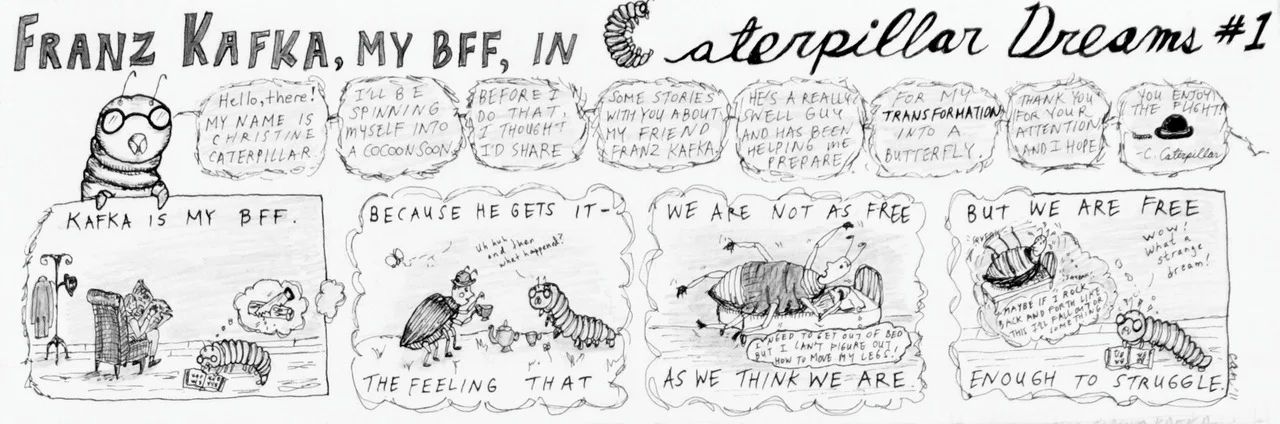 FRANZ KAFKA, MY BFF, IN Caterpillar Dreams #1
Hello, there!
MY NAME IS
CHRISTINE
CATERPILLAR.
I'LL BE
SPINNING
MYSELF INTO
A COCOON SOON.
BEFORE I
DO THAT,
I THOUGHT
I'D SHARE
SOME STORIES
WITH YOU ABOUT
MY FRIEND
FRANZ KAFKA.
HE'S A REALLY
SWELL GUY
AND HAS BEEN
HELPING ME
PREPARE
FOR MY
TRANSFORMATION
INTO A
BUTTERFLY.
THANK YOU
FOR YOUR
ATTENTION
AND I HOPE
YOU ENJOY
THE FLIGHT!
-C. Caterpillar
KAFKA IS MY BFF.
BECAUSE HE GETS IT-
Uh huh
and then
what happened?
THE FEELING THAT
WE ARE NOT AS FREE
I NEED TO GET OUT OF BED
BUT I CAN'T FIGURE OUT
HOW TO MOVE MY LEGS!
AS WE THINK WE ARE.
BUT WE ARE FREE
WOW!
what a
strange
dream!
MAYBE IF I ROCK
BACK AND FORTH LIKE
THIS I'LL FALL OUT OR
SOMETHING
ENOUGH TO STRUGGLE.